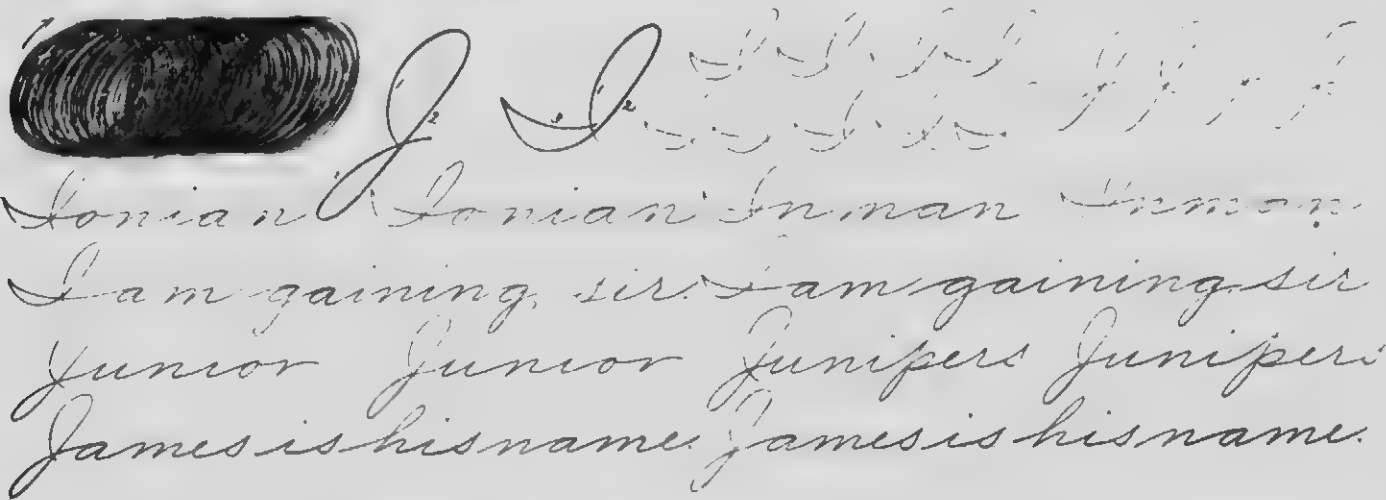 J I I I I I J J J J
I I I I
Ionian Ionian Inman Inman
I am gaining, sir. I am gaining sir
Junior Junior Junipers Junipers
James is his name. James is his name.